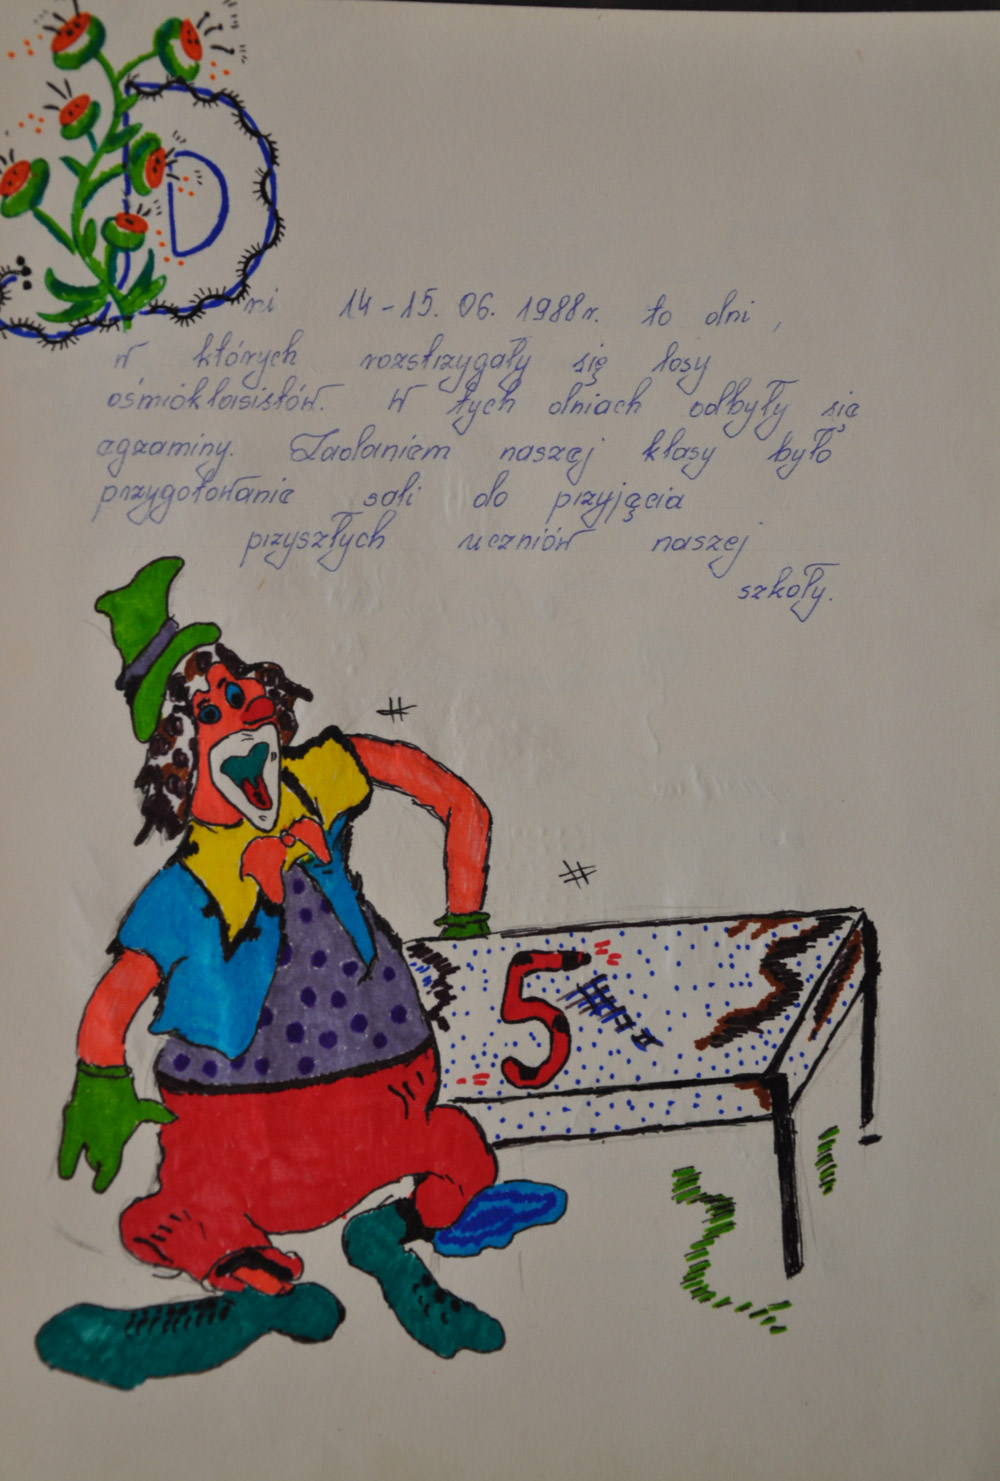 Dni 14-15. 06. 1988r. to dni,
w których rozstrzygały się losy
ośmioklasistów. W tych dniach odbyły się
egzaminy. Zadaniem naszej klasy było
przygotowanie sali do przyjęcia
przyszłych uczniów naszej
szkoły.
5